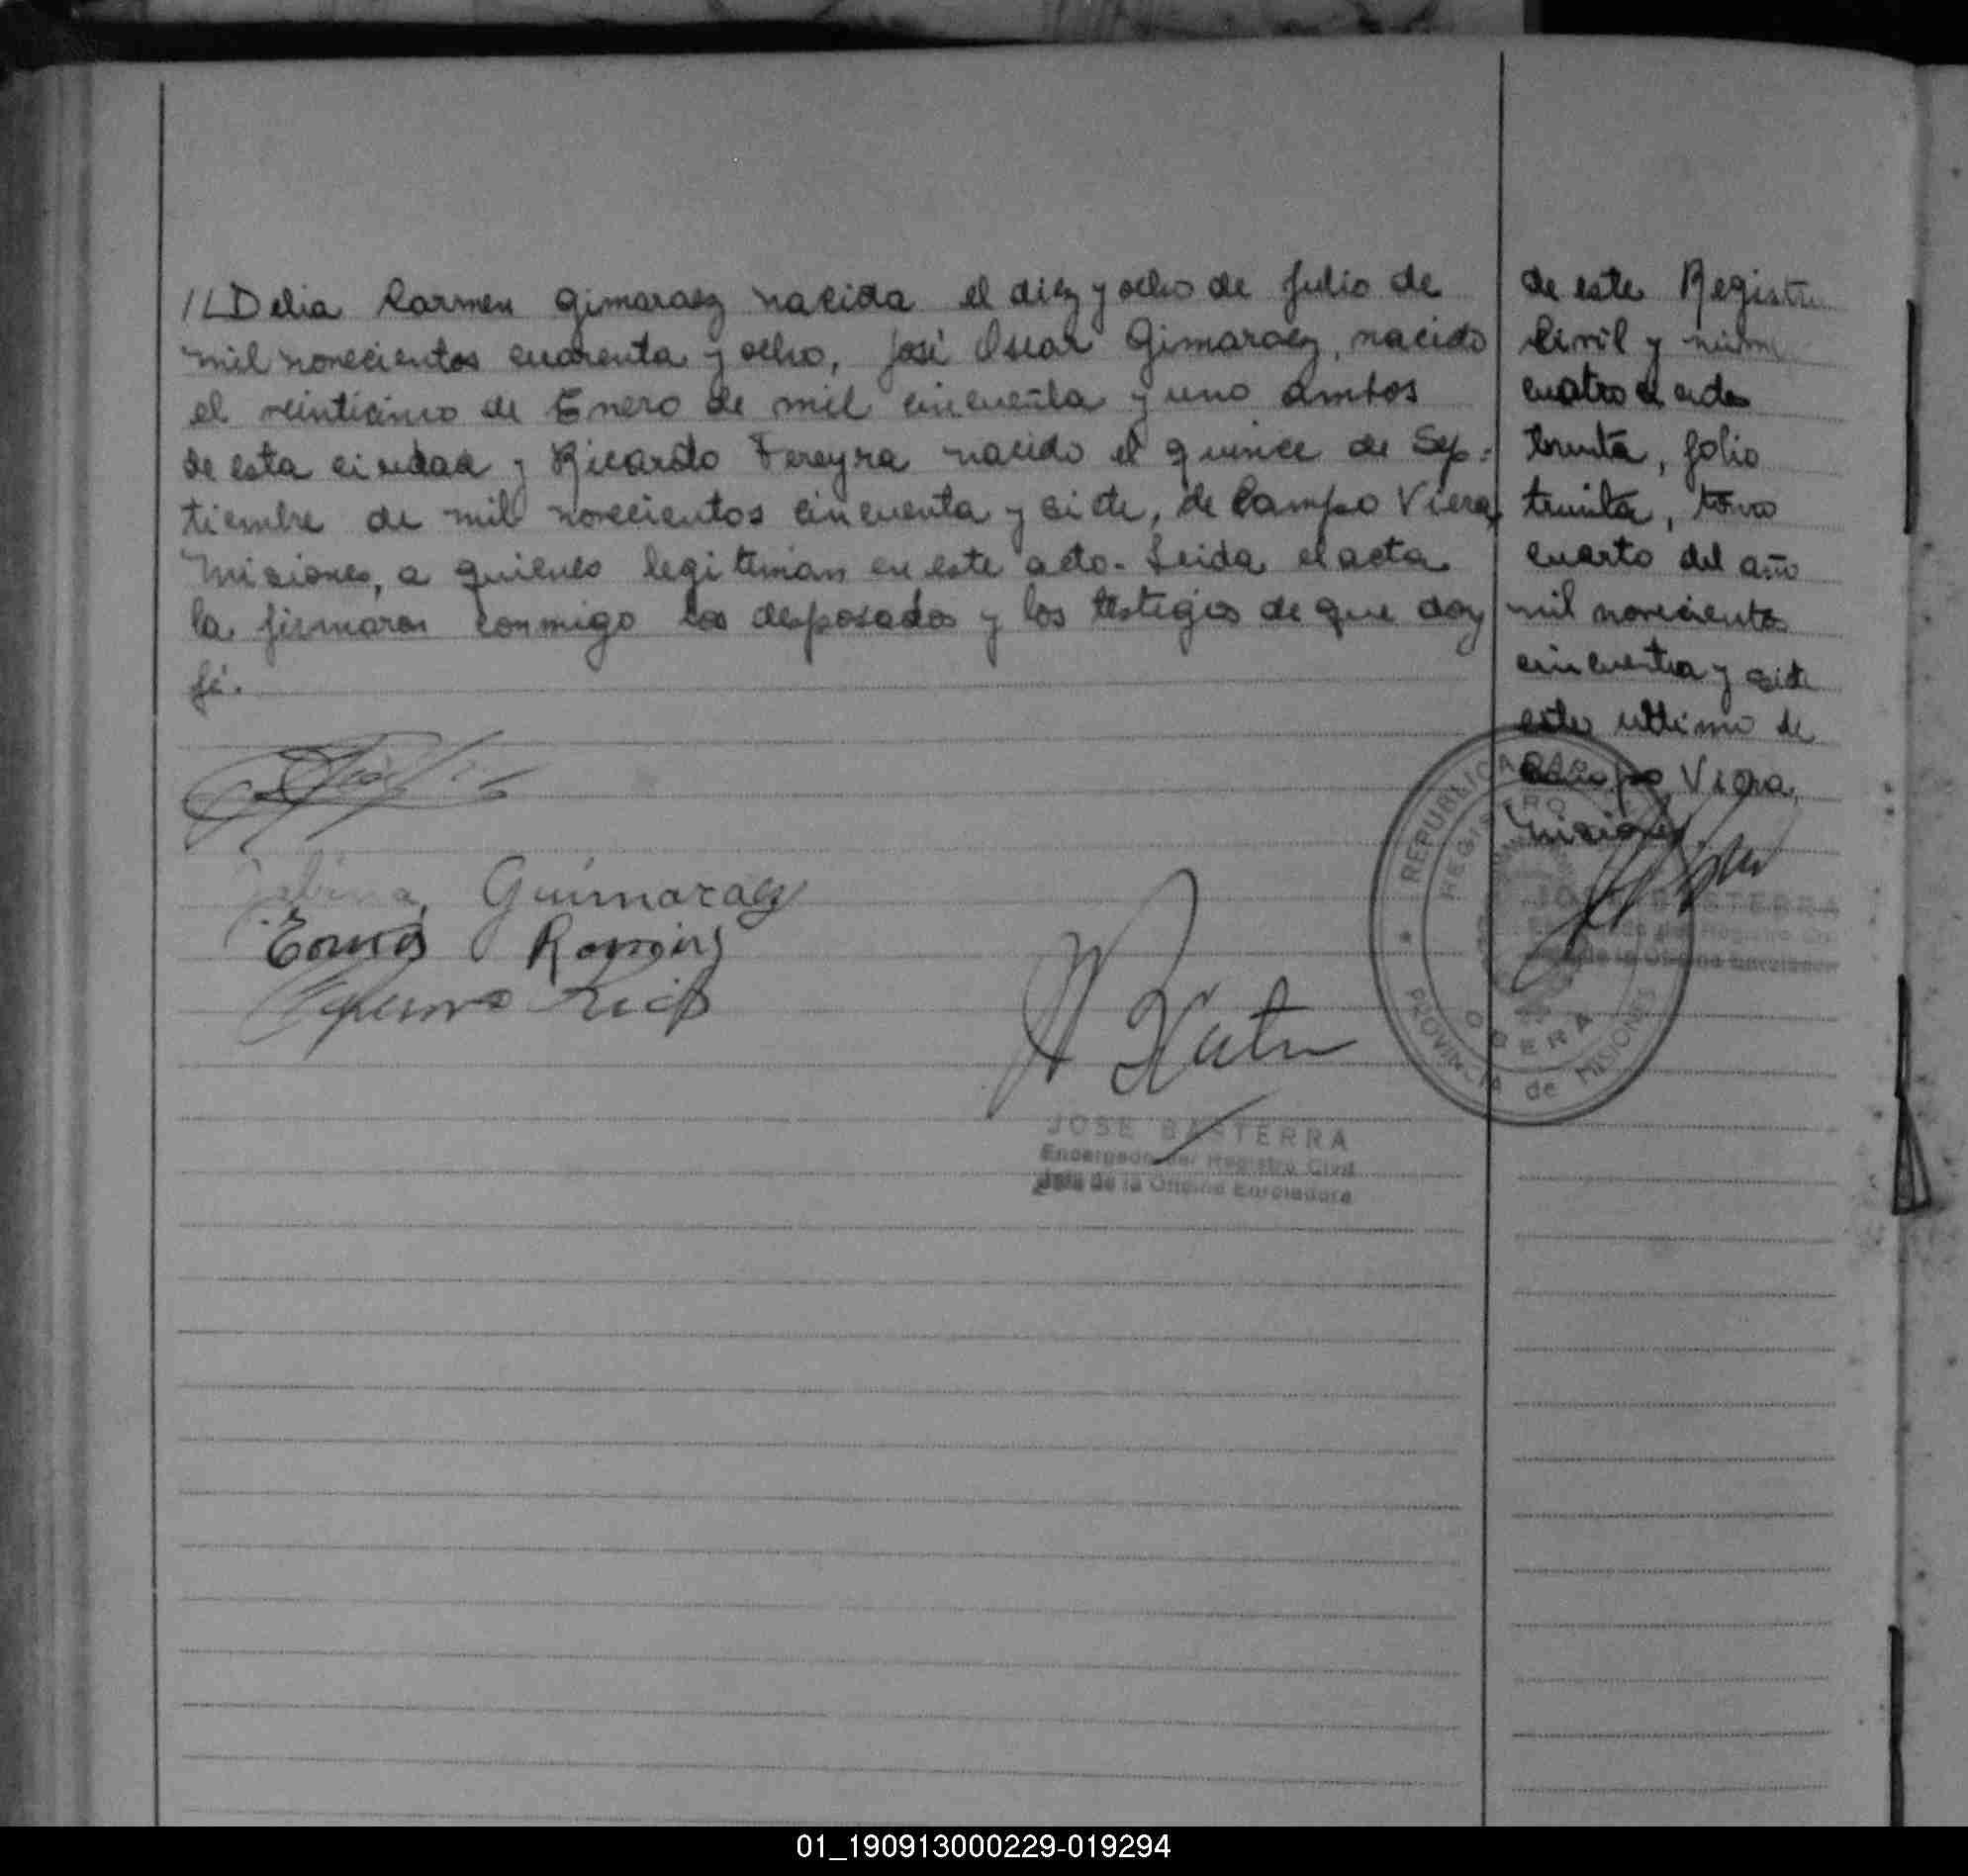 // Delia Carmen Gimaraez nacida el diez y ocho de Julio de
mil novecientos cuarenta y ocho, José Oscar Gimaraez, nacido
el veinticinco de Enero de mil cincuenta y uno ambos
de esta ciudad y Ricardo Fereyra nacido el quince de Sep=
tiembre de mil novecientos cincuenta y siete, de Campo Viera,
Misiones, a quienes legitiman en este acto. Leida el acta
la firmaron conmigo los desposados y los testigos de que doy
fé.
Guimaraez
Tomás Ramirez
JOSE BASTERRA
Encargado del Registro Civil
Jefe de la Oficina Enroladora
de este Registro
Civil y
cuatro
treinta, folio
treinta, tomo
cuarto del año
mil novecientos
cincuenta y siete
este ultimo de
Campo Viera,
Misiones
REPUBLICA
REGISTRO
OBERA
PROVINCIA de MISIONES
JOSE BASTERRA
Encargado del Registro Civil
Jefe de la Oficina Enroladora
01_190913000229-019294